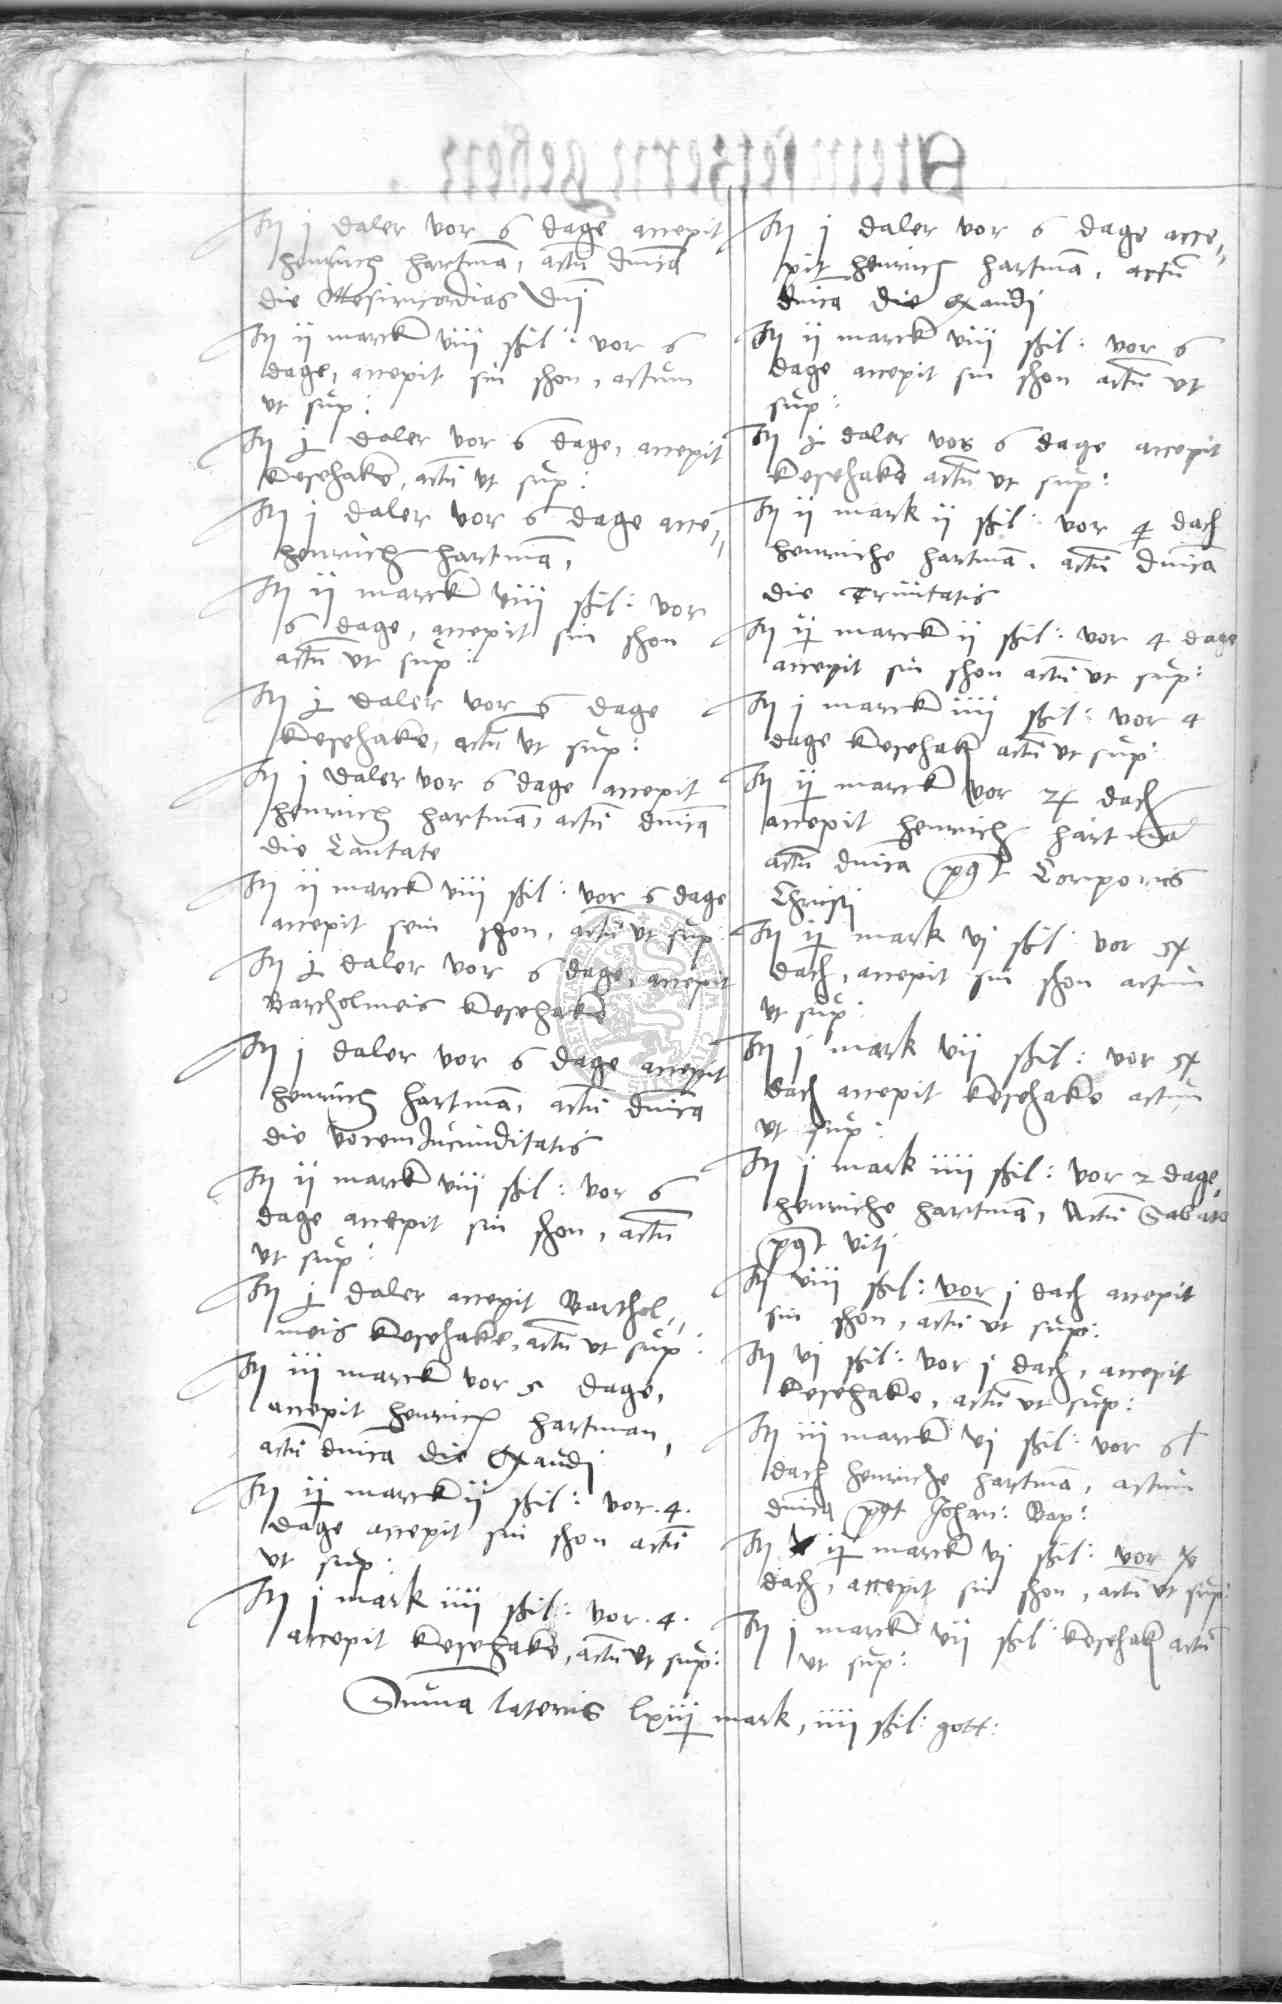 It j daler vor 6 dage accepit
henrich hartmā, actū dnica
die Mesiricordias dnj
It ij marck viij ßil: vor 6
dage, accepit sin shon, actum
vt sup:
It j daler vor 6 dage, accepit
Kesehake, actū vt sup:
It j daler vor 6 dage acce„
henrich hartmā,
It ij marck viij ßil: vor
6 dage, accepit sin shon
actū vt sup:
It j daler vor 6 dage
Kesehake, actū vt sup:
It j daler vor 6 dage accepit
henrich hartmā, actū dnica
die Cantate
It ij marck viij ßil: vor 6 dage
accepit sein shon, actū vt sup
It j daler vor 6 dage, accepit
Bartholmeis Kesehake
It j daler vor 6 dage accepit
henrich hartmā, actū dnica
die vocem Jucunditatis
It ij marck viij ßil: vor 6
dage accepit sin shon, actū
vt sup:
It j daler accepit Barthol„
meis Kesehake, actū vt sup:
It iij marck vor 5 dage,
accepit henrich hartman,
actū dnica die Exaudj
It ij marck ij ßil: vor .4.
dage accepit sin shon actū
vt sup:
It j mark iiij ßil: vor .4.
accepit Kesehake, actū vt sup:
It j daler vor 6 dage acce„
pit henrich hartmā, actū
dnica die Exaudj
It ij marck viij ßil: vor 6
dage accepit sin shon actū vt
sup:
It j daler vor 6 dage accepit
Kesehake actū vt sup:
It ij mark ij ßil: vor 4 dach
henriche hartmā, actū dnica
die Trinitatis
It ij marck ij ßil: vor 4 dage
accepit sin shon actū vt sup:
It j marck iiij ßil: vor 4
dage Kesehak actū vt sup:
It ij marck vor dach
accepit henrich hartmā
actū dnica post Corporis
Christj
It ij mark vj ßil: vor
dach, accepit sin shon actum
vt sup:
It j mark vij ßil: vor
dach accepit Kesehake actum
vt sup:
It j mark iiij ßil: vor 2 dage,
henriche hartmā, Actū Sabato
post vitj
It viij ßil: vor j dach accepit
sin shon, actū vt sup:
It vj ßil: vor j dach, accepit
Kesehake, actū vt sup:
It iij marck vj ßil: vor
dach henriche hartmā, actum
dnica post Johan: Bap:
It ij marck vj ßil: vor
dach, accepit sin shon, actū vt sup:
It j marck vij ßil: Kesehak actū
vt sup:
Suma lateris lxiij mark, iiij ßil: gott: